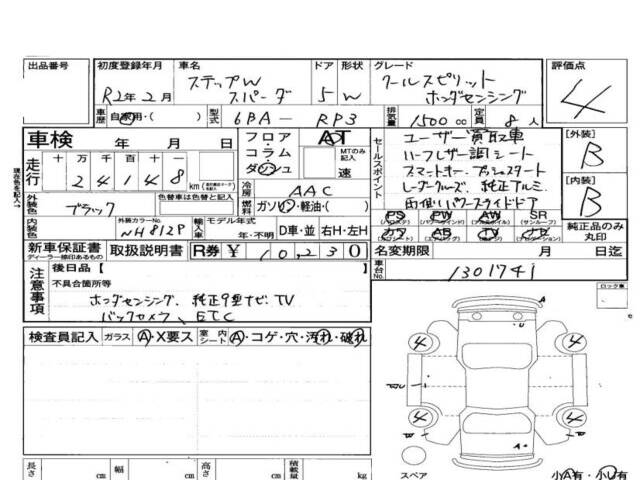 出品番号 初度登録年月 車名 ドア 形状 グレード 評価点
R2年2月 ステップW スパーダ 5 W クールスピリット ホンダセンシング 4
車歴 自家用・( ) 型式 6BA- RP3 排気量 1500 cc 定員 8人
車検 年 月 日
フロア・コラム・ダッシュ AT MTのみ記入 速
セールスポイント
ユーザー買取車
ハーフレザー調シート
スマートキー プッシュスタート
レーダークルーズ、純正アルミ
両側パワースライドドア
[外装] B
[内装] B
走行 十 万 千 百 十 一
2 4 1 4 8 km
現在色を記入→
冷房 AAC
燃料 ガソリン・軽油・( )
外装色 ブラック 色替車は色替と記入
内装色 外装カラーNo. NH812P
輸入車 モデル年式 年・不明 D車・並 右H・左H
PS PW AW SR
(サンルーフ)
カワ AB TV ナビ
純正品のみ丸印
新車保証書 ディーラー様印あるもの 取扱説明書 R券 ¥ 10,230
名変期限 月 日迄
車台No. 1301741
注意事項
後日品【
不具合箇所等
ホンダセンシング、純正9型ナビ、TV
バックカメラ、ETC
ロック車
検査員記入 ガラス A・X要ス 室内シート A・コゲ・穴・汚れ・破れ
A
U
4 4
4 4
W
A
長さ cm 幅 cm 高さ cm 積載量 kg
スペア 小A有・小U有